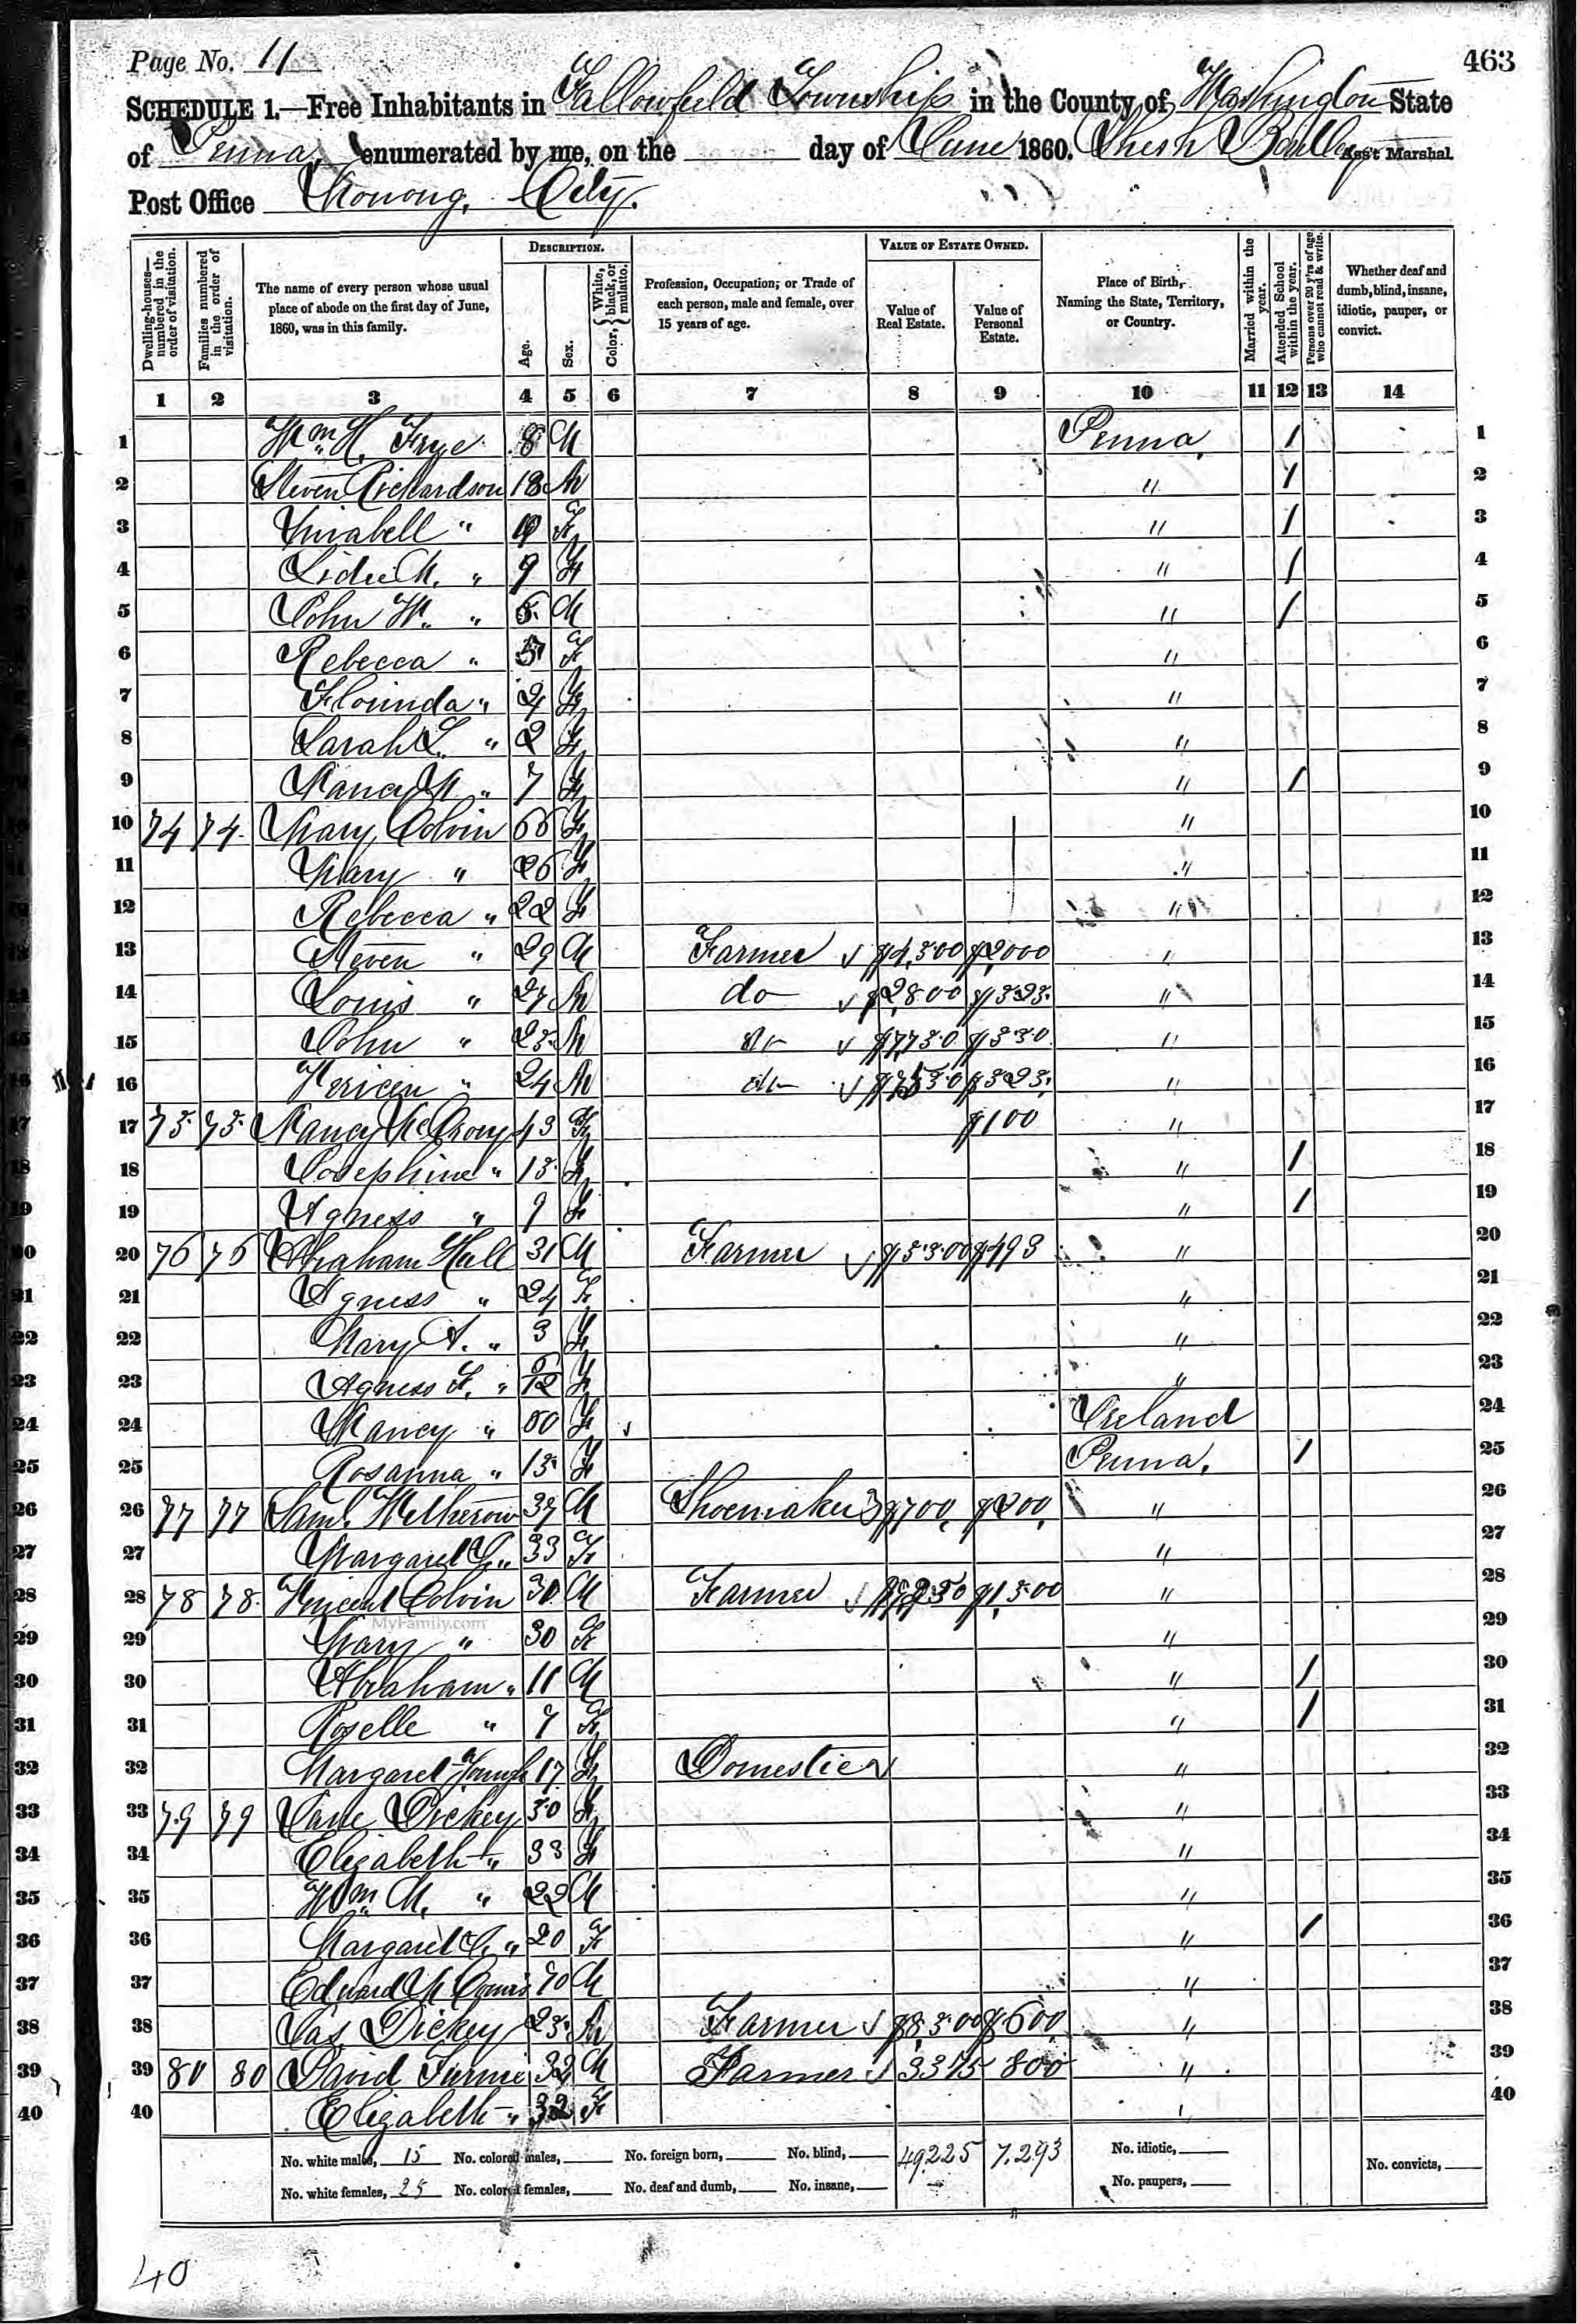 Page No. 11
463
SCHEDULE 1.—Free Inhabitants in Fallowfield Township in the County of Washington State
of Penna, enumerated by me, on the day of June 1860. Ass't Marshal.
Post Office Monong. City.
DESCRIPTION. VALUE OF ESTATE OWNED.
Dwelling-houses—numbered in the order of visitation. Families numbered in the order of visitation. The name of every person whose usual place of abode on the first day of June, 1860, was in this family. Age. Sex. Color, { White, black, or mulatto. Profession, Occupation, or Trade of each person, male and female, over 15 years of age. Value of Real Estate. Value of Personal Estate. Place of Birth, Naming the State, Territory, or Country. Married within the year. Attended School within the year. Persons over 20 y'rs of age who cannot read & write. Whether deaf and dumb, blind, insane, idiotic, pauper, or convict.
1 2 3 4 5 6 7 8 9 10 11 12 13 14
1 Wm. H. Frye 8 M Penna, / 1
2 Steven Richardson 13 M " / 2
3 " F " / 3
4 M. " 9 F " / 4
5 John W. " M " / 5
6 Rebecca " F " 6
7 Florinda " F " 7
8 Sarah L. " 2 F " 8
9 Nancy M " 7 F " / 9
10 74 74 Mary Colvin 66 F " 10
11 Mary " 26 F " 11
12 Rebecca " 22 F " 12
13 Steven " 29 M Farmer $4,500 $2000 " 13
14 Louis " 27 M do $2800 $525 " 14
15 John " 25 M do $7750 $550 " 15
16 " 24 M do $525 " 16
17 75 75 Nancy McCrory 43 F $100 " 17
18 Josephine " 15 F " / 18
19 Agness " 9 F " / 19
20 76 76 Abraham Hull 31 M Farmer $5500 $493 " 20
21 Agness " 24 F " 21
22 Mary A. " 3 F " 22
23 Agness F. " F " 23
24 Nancy " 50 F Ireland 24
25 Rosanna " 15 F Penna, / 25
26 77 77 Saml. 37 M Shoemaker $700, $200, " 26
27 Margaret " 33 F " 27
28 78 78 Vincent Colvin 30 M Farmer $1,500 " 28
29 Mary " 30 F " 29
30 Abraham " 11 M " / 30
31 Roselle " 7 F " / 31
32 Margaret Young 17 F Domestic " 32
33 79 79 Jane Dickey 50 F " 33
34 Elizabeth " 33 F " 34
35 Wm. M. " 22 M " 35
36 Margaret " 20 F " / 36
37 Edward M 70 M " 37
38 Jas Dickey 25 M Farmer $8,500 $600 " 38
39 80 80 David 32 M Farmer 3375 800 " 39
40 Elizabeth " 32 F 40
No. white males, 15 No. colored males, No. foreign born, No. blind, 49225 7.293 No. idiotic,
No. white females, 25 No. colored females, No. deaf and dumb, No. insane, No. paupers, No. convicts,
40
MyFamily.com